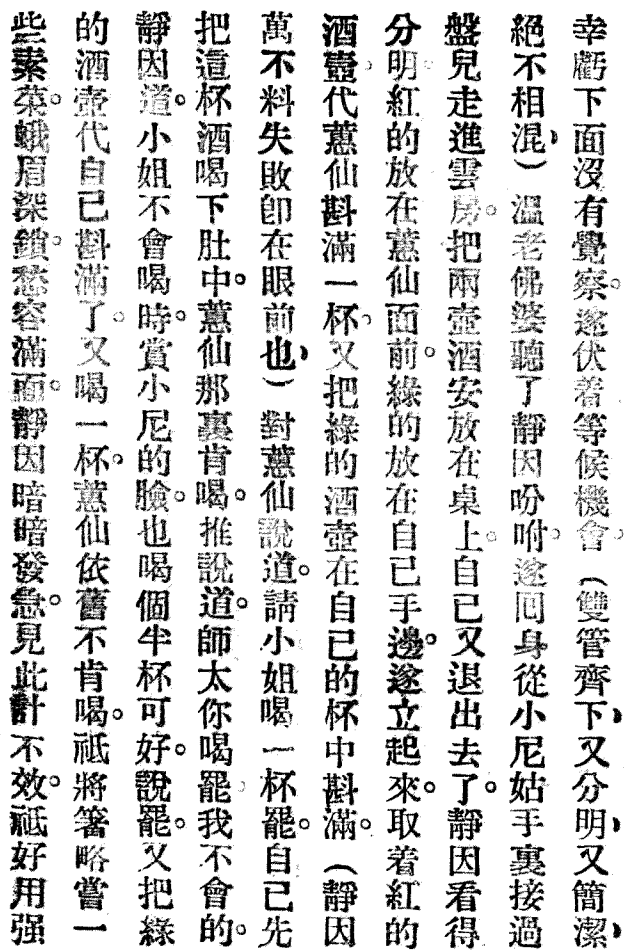 幸虧下面沒有覺察。遂伏着等候機會。（雙管齊下、又分明、又簡潔、
絕不相混、）溫老佛婆聽了靜因吩咐。遂囘身從小尼姑手裏接過
盤兒走進雲房。把兩壺酒安放在桌上。自己又退出去了。靜因看得
分明。紅的放在蕙仙面前。綠的放在自己手邊。遂立起來。取着紅的
酒壺。代蕙仙斟滿一杯。又把綠的酒壺在自己的杯中斟滿。（靜因
萬不料失敗卽在眼前也、）對蕙仙說道。請小姐喝一杯罷。自己先
把這杯酒喝下肚中。蕙仙那裏肯喝。推說道。師太你喝罷。我不會的。
靜因道。小姐不會喝時。賞小尼的臉。也喝個半杯可好。說罷。又把綠
的酒壺代自己斟滿了。又喝一杯。蕙仙依舊不肯喝。祗將箸略嘗一
些素菜。蛾眉深鎖。愁容滿面。靜因暗暗發急。見此計不效。祗好用强